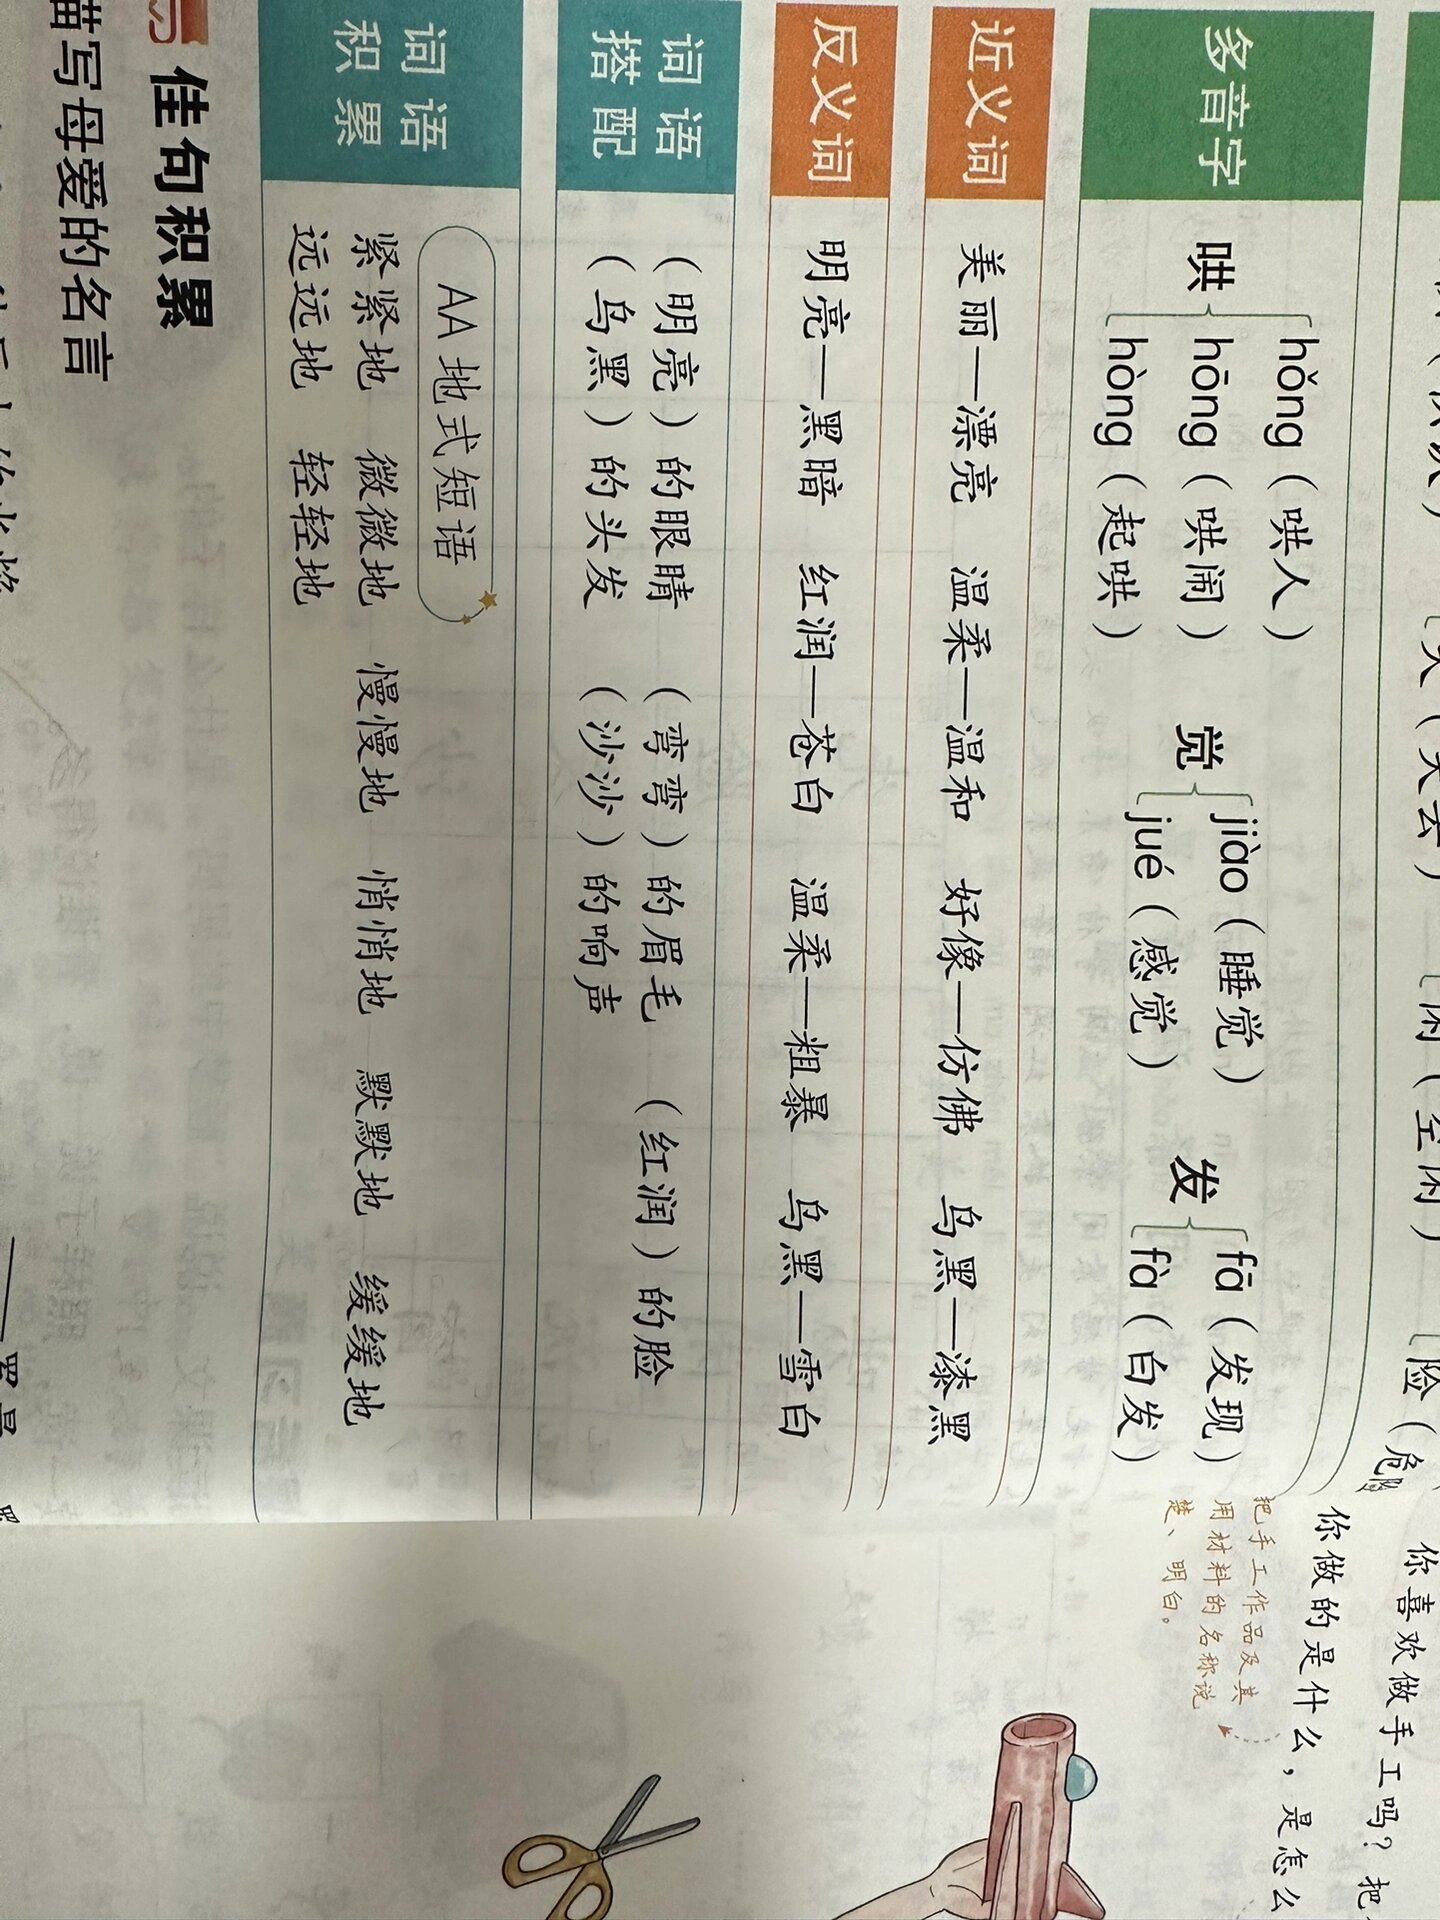 多音字
哄
hǒng（哄人）
hōng（哄闹）
hòng（起哄）
觉
jiào（睡觉）
jué（感觉）
发
fā（发现）
fà（白发）
近义词
美丽—漂亮 温柔—温和 好像—仿佛 乌黑—漆黑
反义词
明亮—黑暗 红润—苍白 温柔—粗暴 乌黑—雪白
词语
搭配
（明亮）的眼睛 （弯弯）的眉毛 （红润）的脸
（乌黑）的头发 （沙沙）的响声
词语
积累
AA地式短语
紧紧地 微微地 慢慢地 悄悄地 默默地 缓缓地
远远地 轻轻地
佳句积累
描写母爱的名言
你喜欢做手工吗？把
你做的是什么，是怎么
把手工作品及其
用材料的名称说
楚、明白。